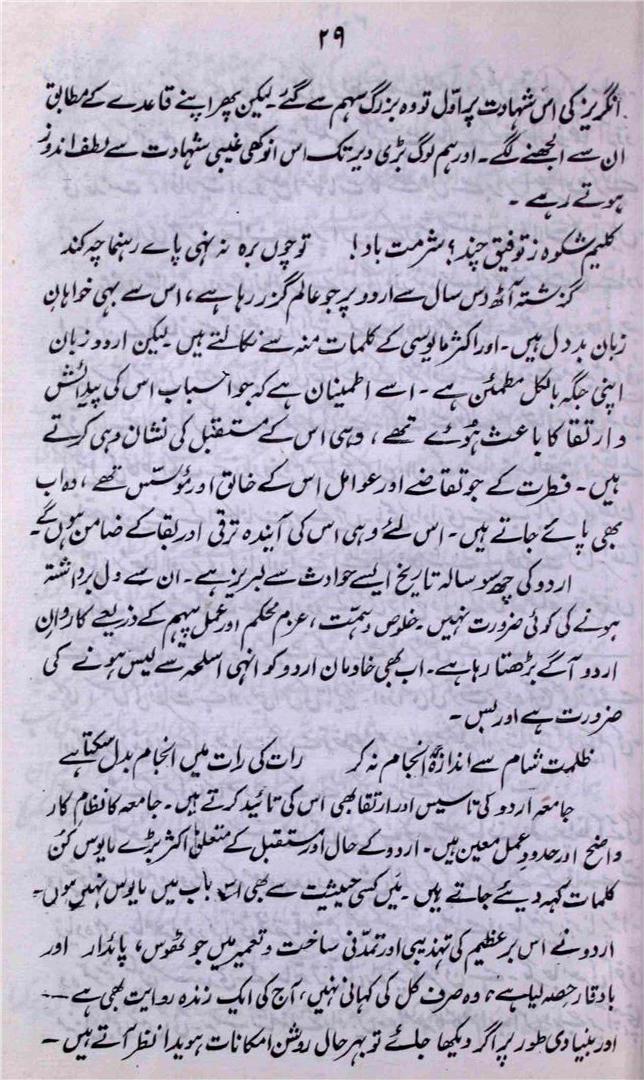 ۲۹
انگریز کی اس شہادت پر اوّل تو وہ بزرگ سہم سے گئے لیکن پھر اپنے قاعدے کے مطابق
ان سے الجھنے لگے۔ اور ہم لوگ بڑی دیر تک اس انوکھی غیبی شہادت سے لطف اندوز
ہوتے رہے۔
کلیم شکوہ ز توفیق چند؟ شرمت باد! تو چوں برہ نہ نہی پاے رہنما چہ کند
گذشتہ آٹھ دس سال سے اردو پر جو عالم گزر رہا ہے، اس سے بہی خواہانِ
زبان بددل ہیں۔ اور اکثر مایوسی کے کلمات منہ سے نکالتے ہیں لیکن اردو زبان
اپنی جگہ بالکل مطمئن ہے۔ اسے اطمینان ہے کہ جو اسباب اس کی پیدائش
و ارتقا کا باعث ہوئے تھے، وہی اس کے مستقبل کی نشان دہی کرتے
ہیں۔ فطرت کے جو تقاضے اور عوامل اس کے خالق اور مؤسّس تھے، وہ اب
بھی پائے جاتے ہیں۔ اس لئے وہی اس کی آیندہ ترقی اور بقا کے ضامن ہوں گے۔
اردو کی چھ سو سالہ تاریخ ایسے حوادث سے لبریز ہے۔ ان سے دل برداشتہ
ہونے کی کوئی ضرورت نہیں۔ خلوص و ہمّت، عزم محکم اور عمل پیہم کے ذریعے کاروانِ
اردو آگے بڑھتا رہا ہے۔ اب بھی خادمان اردو کو انہی اسلحہ سے لیس ہونے کی
ضرورت ہے اور بس۔
ظلمت شام سے اندازۂ انجام نہ کر رات کی رات میں انجام بدل سکتا ہے
جامعہ اردو کی تاسیس اور ارتقا بھی اس کی تائید کرتے ہیں۔ جامعہ کا نظام کار
واضح اور حدودِ عمل معین ہیں۔ اردو کے حال اور مستقبل کے متعلق اکثر بڑے مایوس کن
کلمات کہہ دیئے جاتے ہیں۔ میں کسی حیثیت سے بھی اس باب میں مایوس نہیں ہوں۔
اردو نے اس برعظیم کی تہذیبی اور تمدّنی ساخت و تعمیر میں جو ٹھوس، پائدار اور
باوقار حصہ لیا ہے، وہ صرف کل کی کہانی نہیں، آج کی ایک زندہ روایت بھی ہے۔۔۔
اور بنیادی طور پر اگر دیکھا جائے تو بہرحال روشن امکانات ہویدا نظر آتے ہیں۔